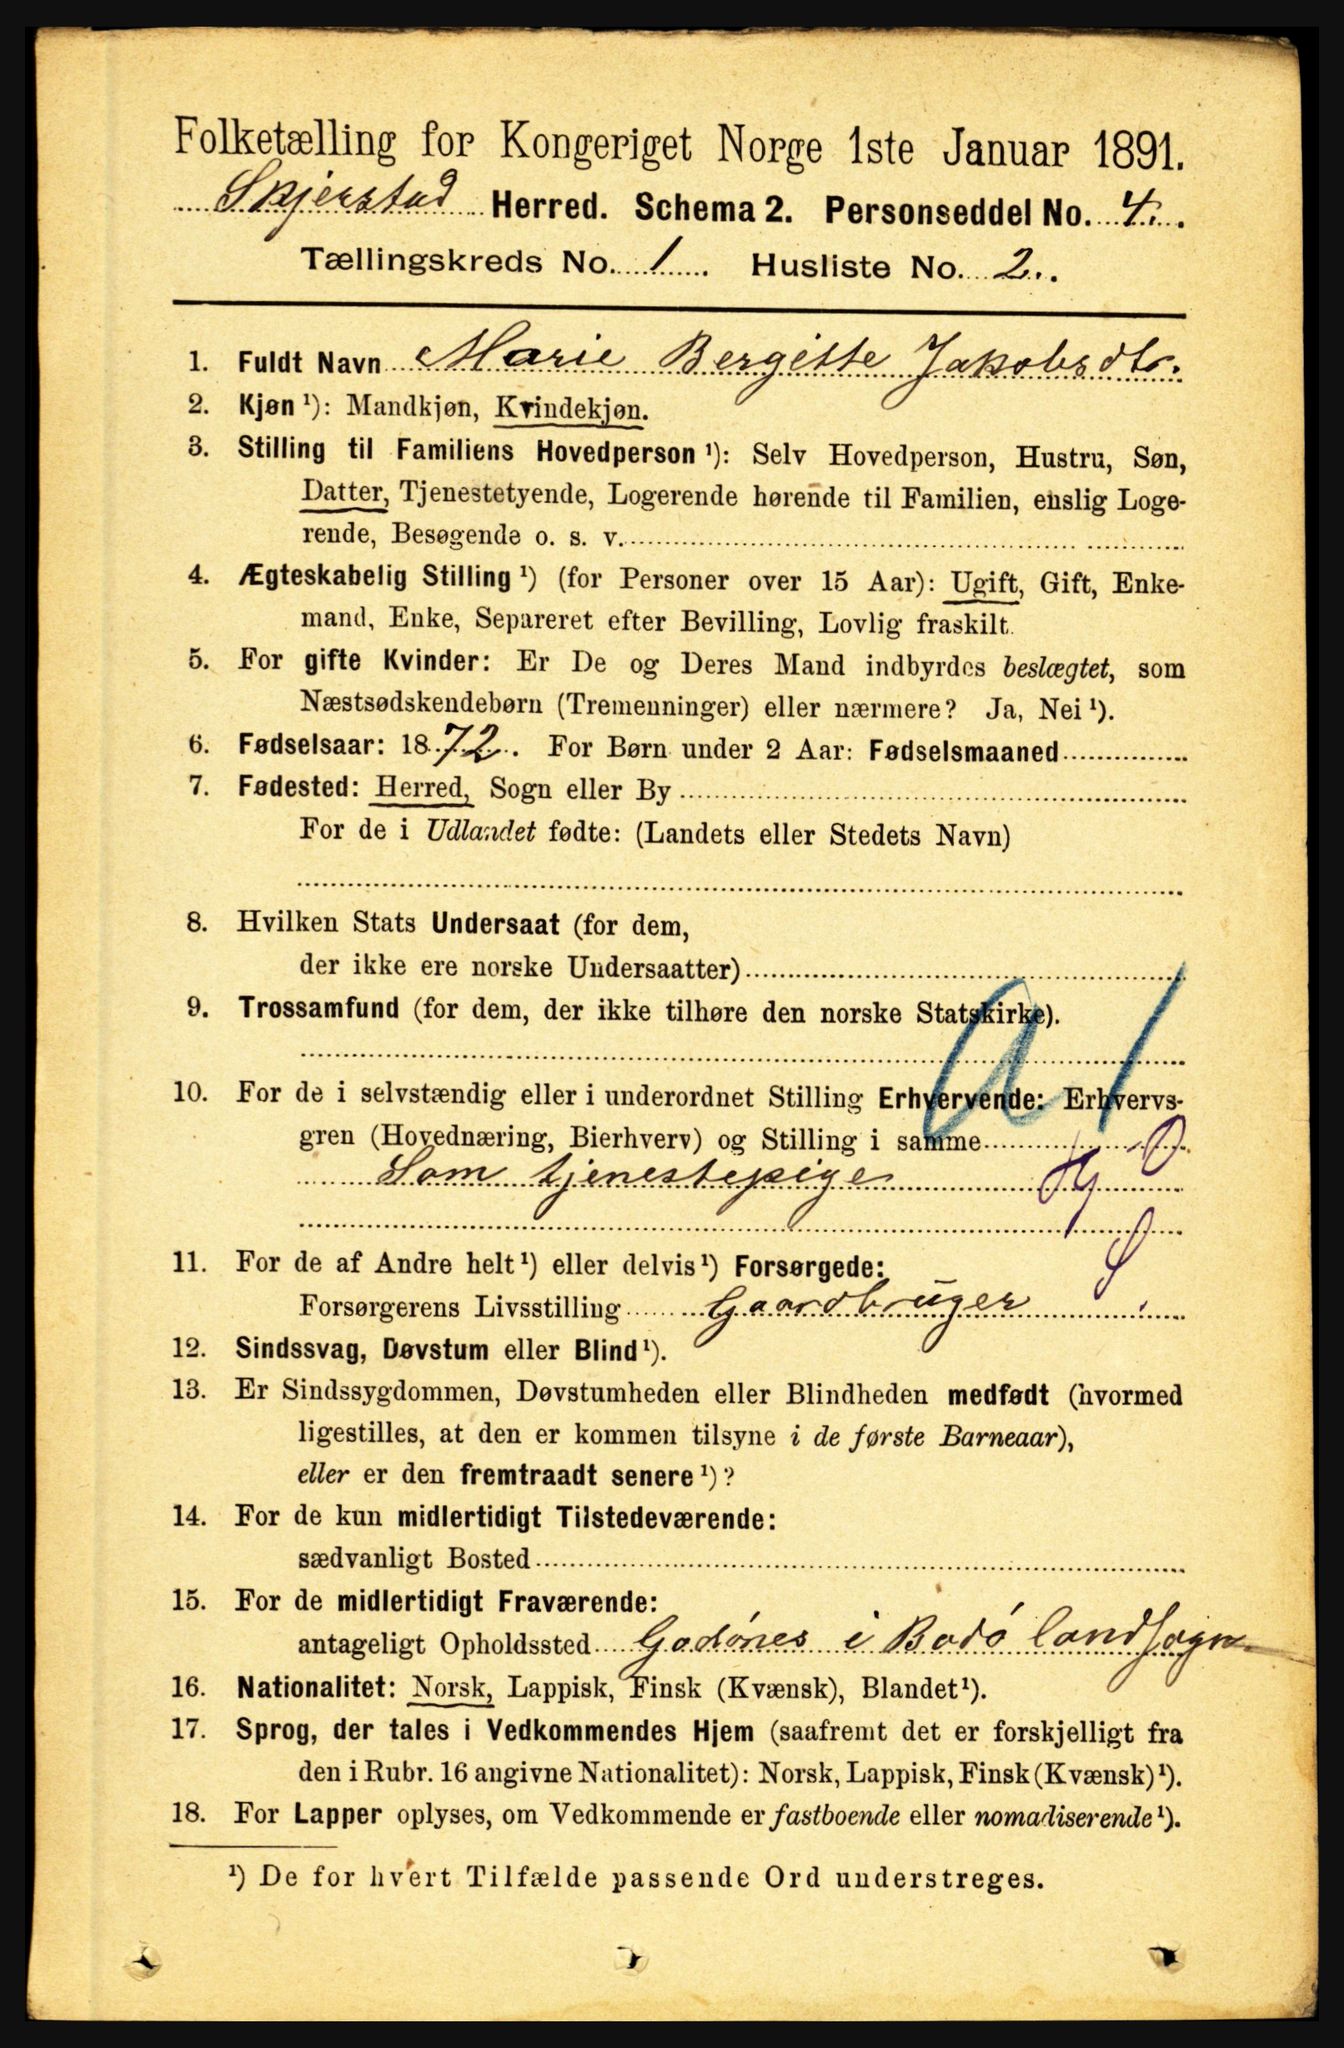 Folketælling for Kongeriget Norge 1ste Januar 1891.
Skjerstad Herred. Schema 2. Personseddel No. 4.
Tællingskreds No. 1 Husliste No. 2.
1. Fuldt Navn Marie Bergitte Jakobsdtr.
2. Kjøn ¹): Mandkjøn, Kvindekjøn.
3. Stilling til Familiens Hovedperson ¹): Selv Hovedperson, Hustru, Søn,
Datter, Tjenestetyende, Logerende hørende til Familien, enslig Loge-
rende, Besøgende o. s. v.
4. Ægteskabelig Stilling ¹) (for Personer over 15 Aar): Ugift, Gift, Enke-
mand, Enke, Separeret efter Bevilling, Lovlig fraskilt.
5. For gifte Kvinder: Er De og Deres Mand indbyrdes beslægtet, som
Næstsødskendebørn (Tremenninger) eller nærmere? Ja, Nei ¹).
6. Fødselsaar: 1872. For Børn under 2 Aar: Fødselsmaaned
7. Fødested: Herred, Sogn eller By
For de i Udlandet fødte: (Landets eller Stedets Navn)
8. Hvilken Stats Undersaat (for dem,
der ikke ere norske Undersaatter)
9. Trossamfund (for dem, der ikke tilhøre den norske Statskirke).
10. For de i selvstændig eller i underordnet Stilling Erhvervende: Erhvervs-
gren (Hovednæring, Bierhverv) og Stilling i samme
Som tjenestepige
11. For de af Andre helt ¹) eller delvis ¹) Forsørgede:
Forsørgerens Livsstilling Gaardbruger
12. Sindssvag, Døvstum eller Blind ¹).
13. Er Sindssygdommen, Døvstumheden eller Blindheden medfødt (hvormed
ligestilles, at den er kommen tilsyne i de første Barneaar),
eller er den fremtraadt senere ¹)?
14. For de kun midlertidigt Tilstedeværende:
sædvanligt Bosted
15. For de midlertidigt Fraværende:
antageligt Opholdssted Godönes i Bodö landsogn
16. Nationalitet: Norsk, Lappisk, Finsk (Kvænsk), Blandet ¹).
17. Sprog, der tales i Vedkommendes Hjem (saafremt det er forskjelligt fra
den i Rubr. 16 angivne Nationalitet): Norsk, Lappisk, Finsk (Kvænsk) ¹).
18. For Lapper oplyses, om Vedkommende er fastboende eller nomadiserende ¹).
¹) De for hvert Tilfælde passende Ord understreges.